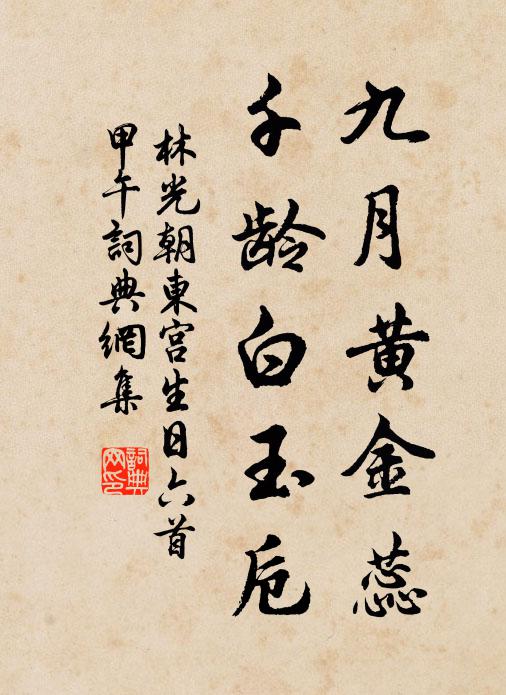 九月黄金蕊
千龄白玉卮
林光朝東宮生日六首
甲午詞典網集
詞典
网印